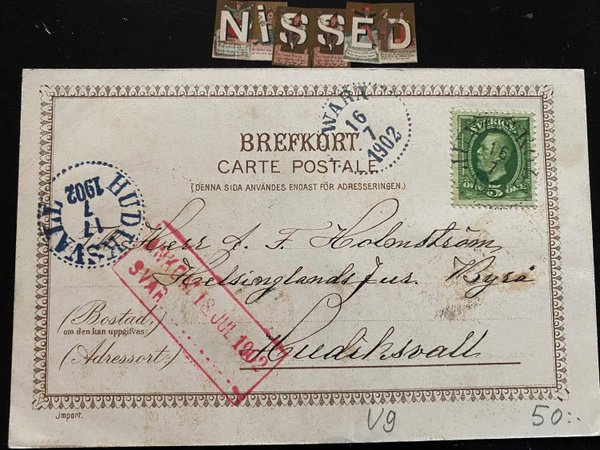 NiSSED
WARA
16
7
1902
BREFKORT.
CARTE POSTALE
(DENNA SIDA ANVÄNDES ENDAST FÖR ADRESSERINGEN.)
SVERIGE
5
ÖRE
HUDIKSVALL
17
7
1902
Herr A. F. Holmström
Helsinglands Jur. Byrå
Hudiksvall
ANKOM 18 JUL 1902
SVAR
(Bostad,
om den kan uppgifvas)
(Adressort.)
Import.
Vg
50:-